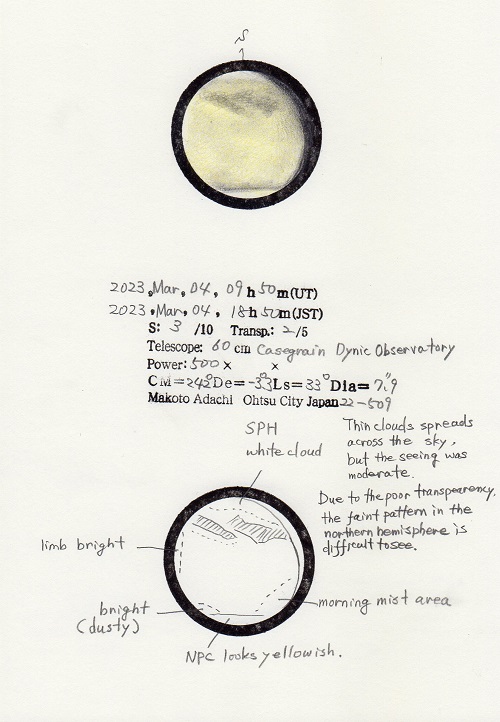 S
2023, Mar, 04, 09h 50m(UT)
2023, Mar, 04, 18h 50m(JST)
S: 3 /10 Transp.: 2/5
Telescope: 60 cm Casegrain Dynic Observatory
Power: 500 × ×
CM=242° De=-3.3° Ls=33° Dia=7".9
Makoto Adachi Ohtsu City Japan 22-509
SPH
white cloud
Thin clouds spreads
across the sky,
but the seeing was
moderate.
Due to the poor transperency,
the faint pattern in the
northern hemisphere is
difficult to see.
limb bright
bright
(dusty)
morning mist area
NPC looks yellowish.